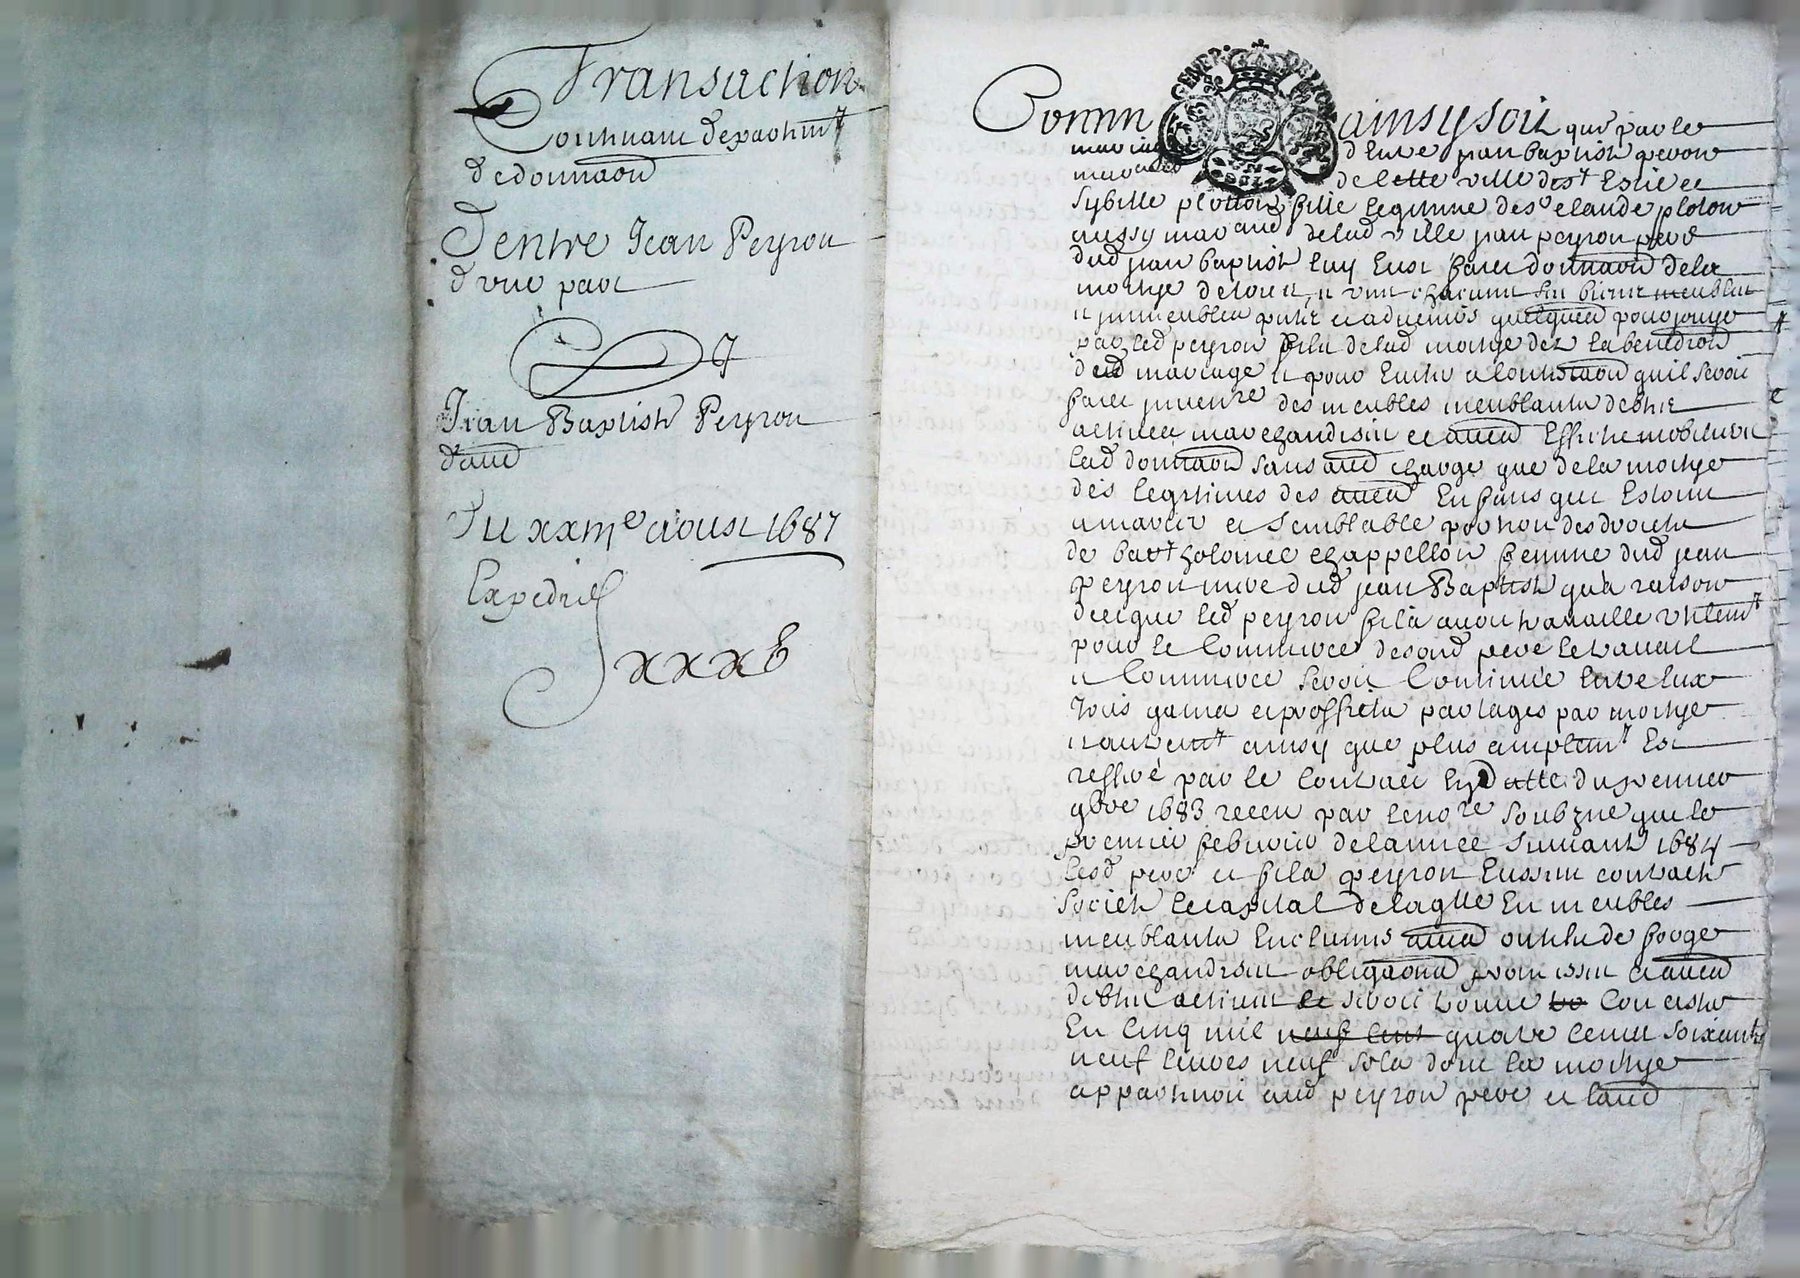 Transaction
Contenant departemt
de donnaon
D'entre Jean Peyron
d'une part
Et
Jean Baptiste Peyron
d'aue
Du xxme aoust 1687
Expedié
xxxE
GENER
Comm ainsy soit que par le
mariage d'entre jean baptiste peyron
marchand de cette ville de st Estiene
Sybille plotton fille legitime de sr claude ploton
aussy marchand de lad ville jean peyron pere
dud jean baptiste luy eust faict donnaon de la
moitye de tous et un chacuns ses biens meubles
et jmmeubles putz et advenirs quelquea pour jouyr
par led peyron fils de lad moitye dez la benedion
dud mariage et pour luitte a condition quil seroit
faict jnvenre des meubles meublants debtes
actives marchandises et aues Effects mobiliers
lad donnaon sans aue charge que de la moitye
des legitimes des aues Enfans qui Estoint
a marier et semblable portion des droicts
de bartholomee chappellon femme dud jean
peyron mere dud jean Baptiste qu'a raison
de ce que led peyron fils avoit travaille utilemt
pour le Commerce de sond pere le travail
et Commerce seroit Continué entre eux
tous gains et proffits partages par moitye
et autremt ainsy que plus amplemt Est
resservé par le contract en datte du premier
9bre 1683 receu par le nore soubzné que le
premier febvrier de lannee suivante 1684
lesd pere et fils peyron eussent contracté
societé le capital de laquelle En meubles
meublants enclumes aues outils de forge
marchandises obligaons promesses et aues
debtes actives se seroit trouve consister
En cinq mil neuf cent quatre cents soixante
neuf livres neuf sols dont la moitye
appartenoit aud peyron pere et laue